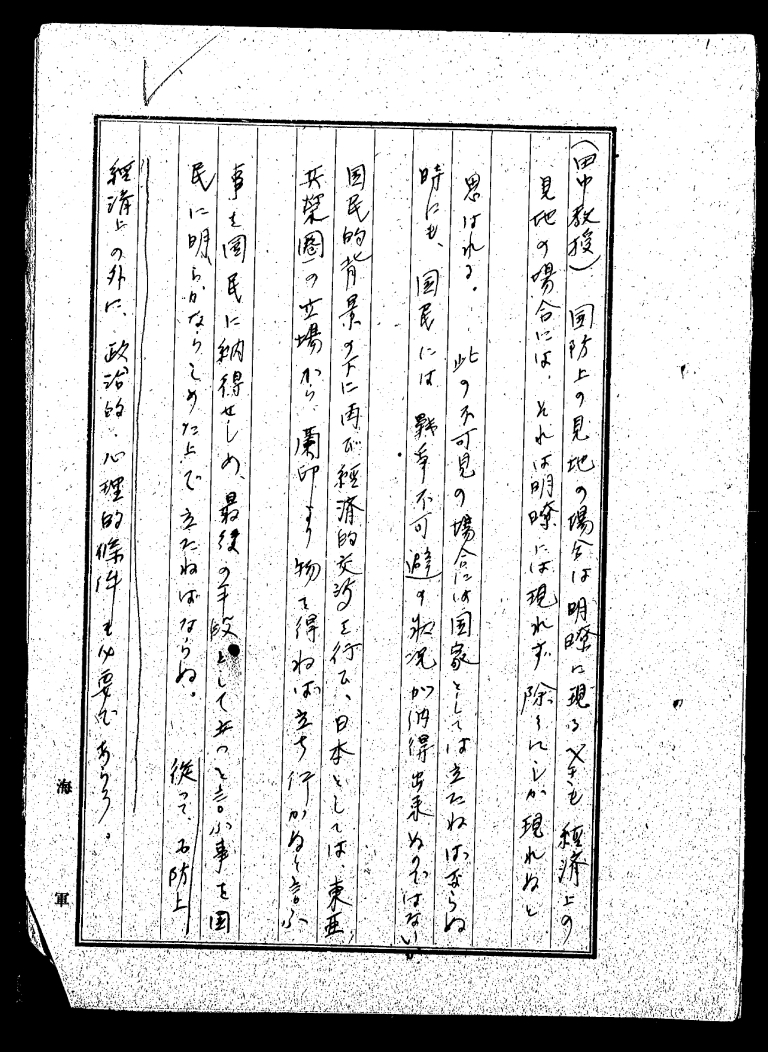 (田中教授) 国防上の見地の場合は明瞭に現るゝも 経済上の
見地の場合には、それは明瞭には現れず、除々にしか現れぬと
思はれる。此の不可見の場合には国家としては立たねばならぬ
時にも、国民には 戦争不可避の状況が納得出来ぬのではない
国民的背景の下に再び経済的交渉を行ひ、日本としては、東亜
共栄圏の立場から、蘭印より物を得ねば立ち行かぬと言ふ
事を国民に納得せしめ、最後の手段として立つと言ふ事を国
民に明らかならしめた上で立たねばならぬ。 従って 国防上
経済上の外に、政治的、心理的條件も必要であらう。
海軍